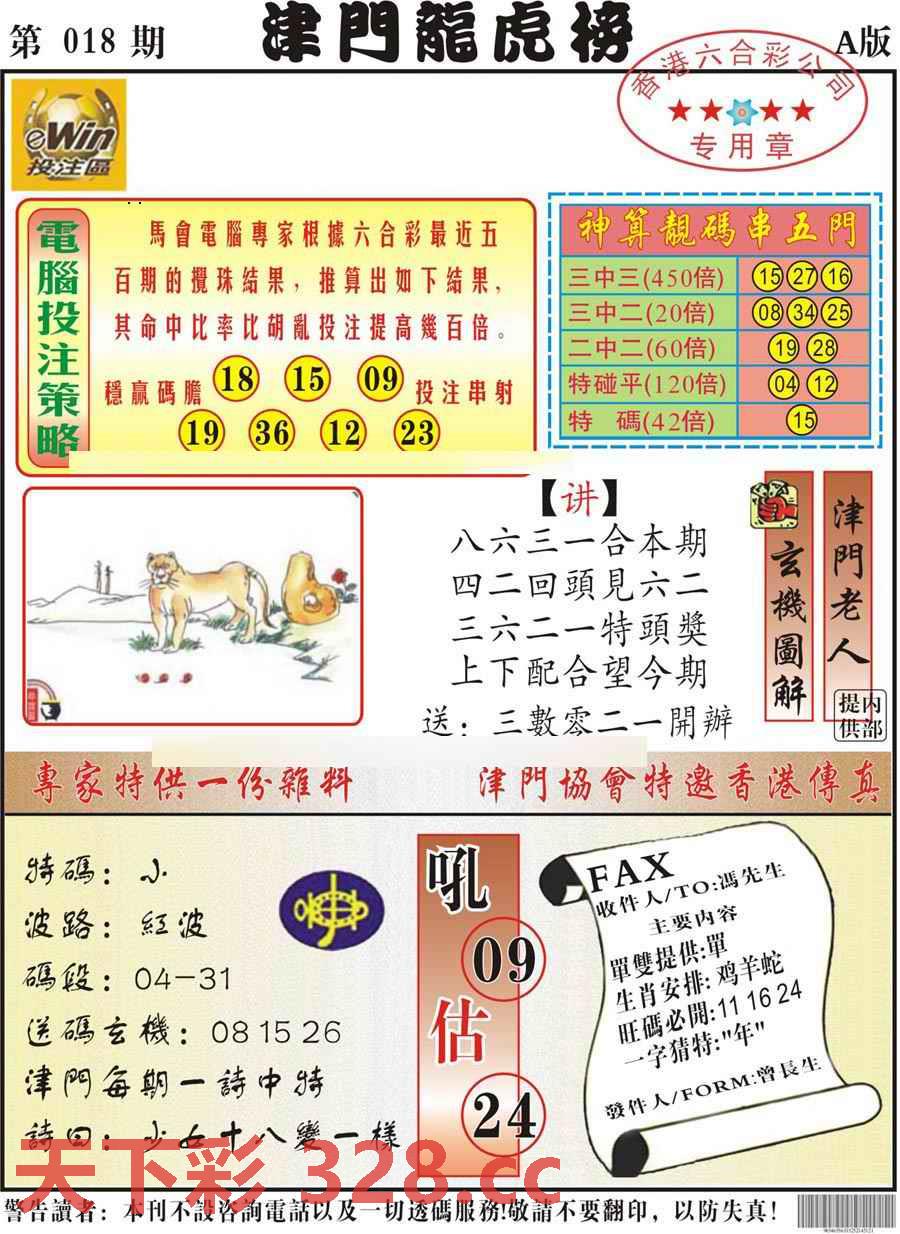 第 018 期
津門龍虎榜
A版
香港六合彩公司
专用章
eWin
投注區
電腦投注策略
馬會電腦專家根據六合彩最近五
百期的攪珠結果，推算出如下結果，
其命中比率比胡亂投注提高幾百倍。
穩贏碼膽 18 15 09 投注串射
19 36 12 23
神算靚碼串五門
三中三(450倍) 15 27 16
三中二(20倍) 08 34 25
二中二(60倍) 19 28
特碰平(120倍) 04 12
特 碼(42倍) 15
【讲】
八六三一合本期
四二回頭見六二
三六二一特頭獎
上下配合望今期
送：三數零二一開辦
玄機圖解
津門老人
内部提供
專家特供一份雜料
津門協會特邀香港傳真
特碼：小
波路：紅波
碼段：04-31
送碼玄機：08 15 26
津門每期一詩中特
詩曰：少女十八變一樣
吼
09
估
24
FAX
收件人/TO:馮先生
主要内容
單雙提供:單
生肖安排:鸡羊蛇
旺碼必開:11 16 24
一字猜特:"年"
發件人/FORM:曾長生
天下彩 328.cc
警告讀者：本刊不設咨詢電話以及一切透碼服務!敬請不要翻印，以防失真!